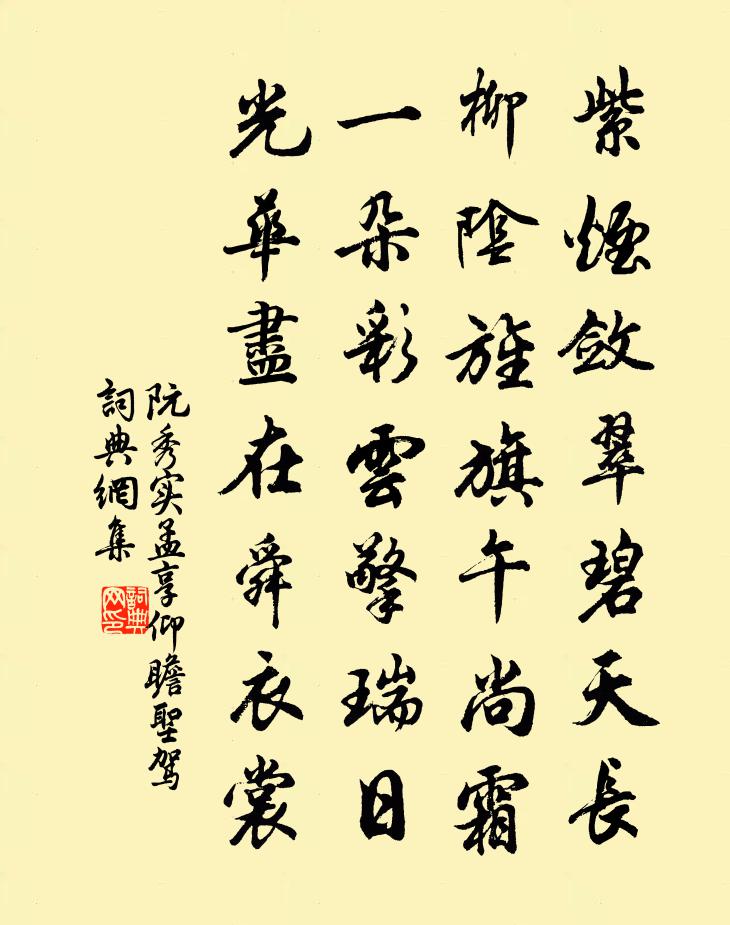 紫煙斂翠碧天長
柳陰旌旗午尚霜
一朵彩雲擎瑞日
光華盡在舜衣裳
阮秀实孟享仰瞻聖驾
詞典網集
詞典網印